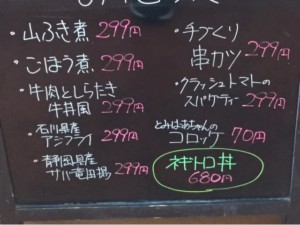 ・山ふき煮 299円
・ごぼう煮 299円
・牛肉としらたき
牛丼風 299円
・石川県産
アジフライ 299円
・静岡県産
サバ竜田揚 299円
・手づくり
串カツ 299円
・クラッシュトマトの
スパゲティー 299円
とみばあちゃんの
コロッケ 70円
ネギトロ丼
680円